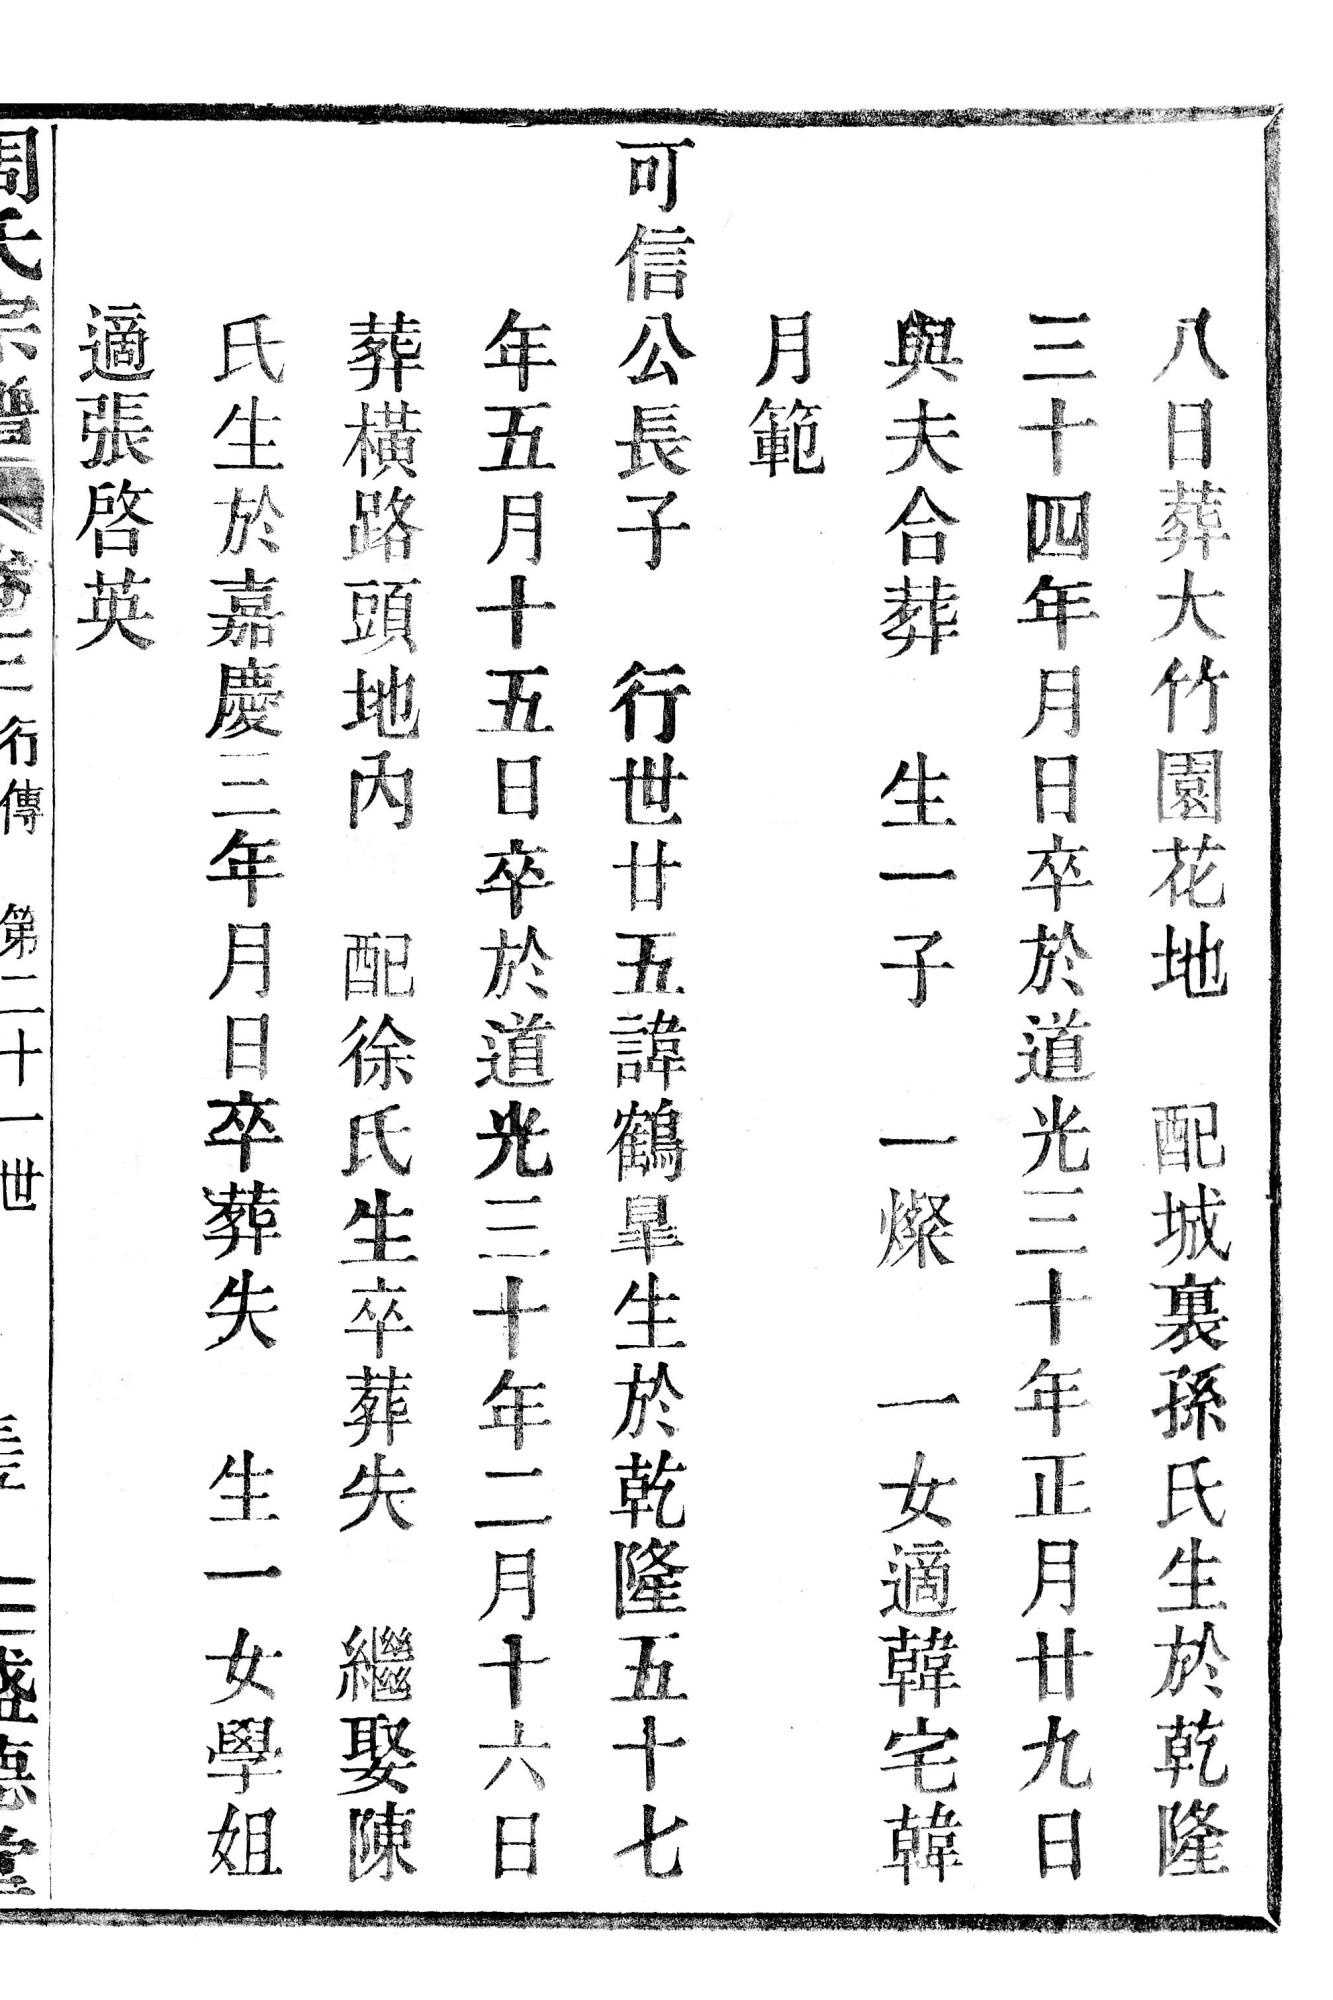 八日葬大竹園花地　配城裏孫氏生於乾隆
三十四年月日卒於道光三十年正月廿九日
與夫合葬　生一子　一燦　一女適韓宅韓
月範
可信公長子　行世廿五諱鶴皐生於乾隆五十七
年五月十五日卒於道光三十年二月十六日
葬橫路頭地內　配徐氏生卒葬失　繼娶陳
氏生於嘉慶三年月日卒葬失　生一女學姐
適張啓英
周氏宗譜　卷二　行傳　第二十一世　盛德堂